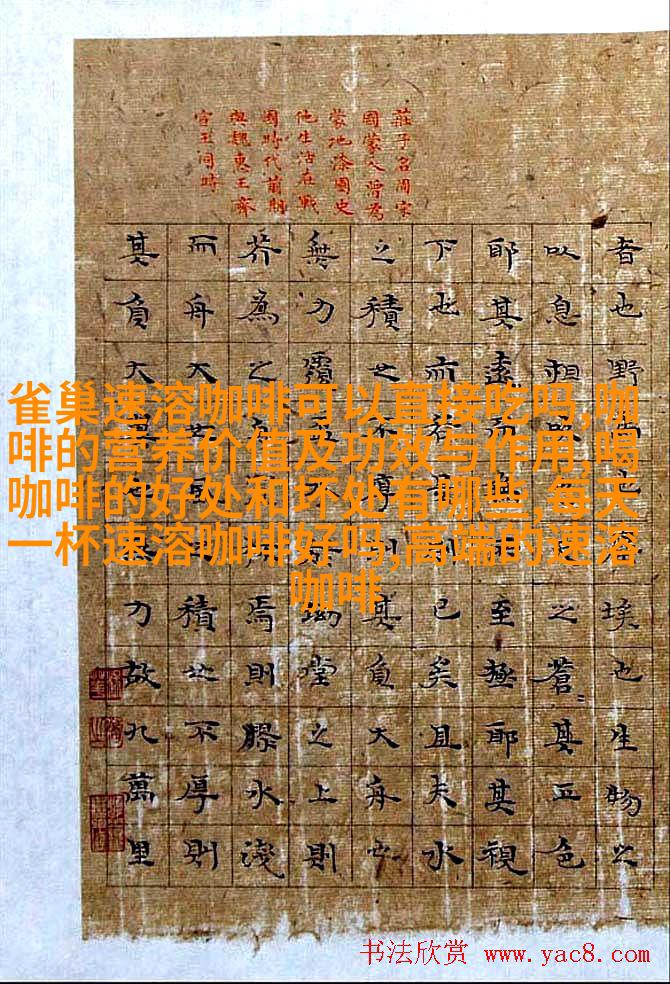 莊子名周宋
國蒙人曾為
蒙地漆園史
他生活在戰
國時代前期
與魏惠王齊
宣王同時
者也野埃也生物之
以息相之蒼其正色
耶其遠而至極耶其視
下也而若已矣且夫水
之積也不厚則其負大舟也
無力覆坳堂之上則
芥為之焉則膠水淺
而舟大積也不厚則
其負大力故九萬里
雀巢速溶咖啡可以直接吃吗,咖
啡的营养价值及功效与作用,喝
咖啡的好处和坏处有哪些,每天
一杯速溶咖啡好吗,高端的速溶
咖啡
书法欣赏 www.yac8.com